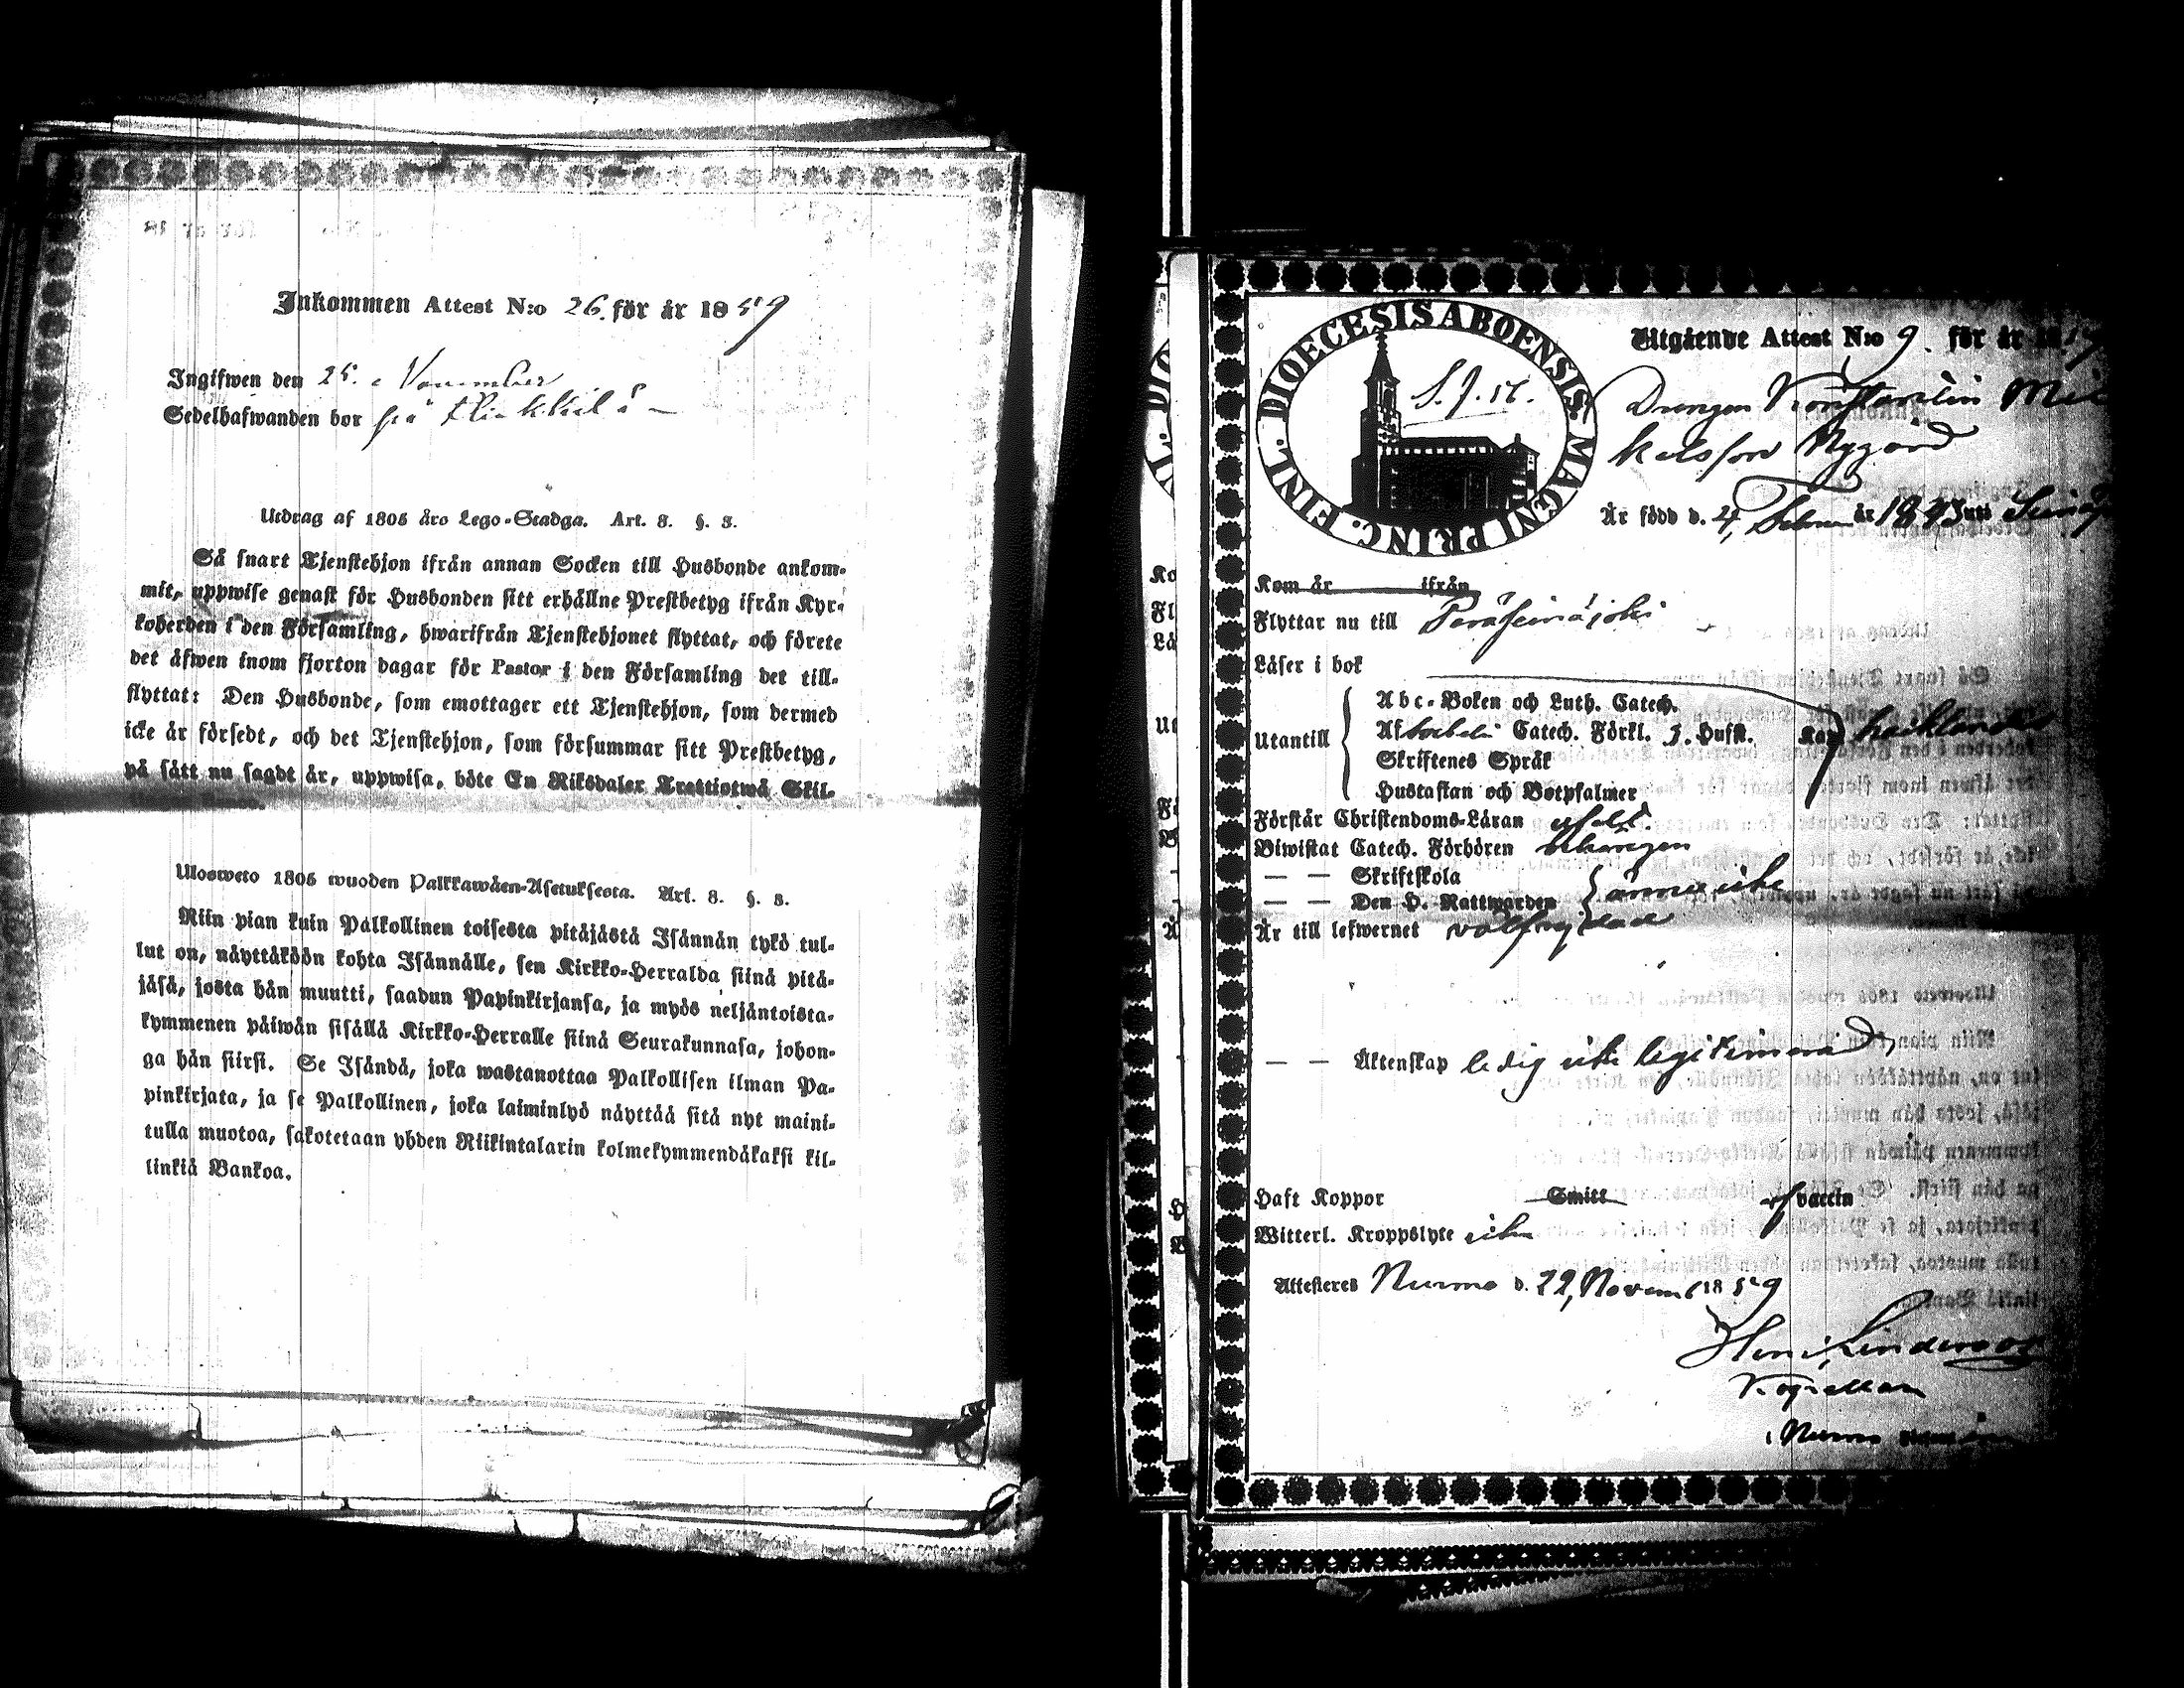 Inkommen Attest N:o 26. för år 1859
Ingifwen den 25. November
Sedelhafwanden bor på
Utdrag af 1805 års Lego-Stadga. Art. 3. §. 3.
Så snart Tjenstehjon ifrån annan Socken till Husbonde ankom-
mit, uppwise genast för Husbonden sitt erhållne Prestbetyg ifrån Kyr-
koherden i den Församling, hwarifrån Tjenstehjonet flyttat, och förete
det äfwen inom fjorton dagar för Pastor i den Församling det till-
flyttat: Den Husbonde, som emottager ett Tjenstehjon, som dermed
icke är försedt, och det Tjenstehjon, som försummar sitt Prestbetyg,
på sätt nu sagdt är, uppwisa, böte En Riksdaler Trettiotwå Skil-
Ulosweto 1805 wuoden Palkkawäen-Asetuksesta. Art. 3. §. 3.
Niin pian kuin Palkollinen toisesta pitäjästä Isännän tykö tul-
lut on, näyttäköön kohta Isännälle, sen Kirkko-Herralda siinä pitä-
jäsä, josta hän muutti, saadun Papinkirjansa, ja myös neljäntoista-
kymmenen päiwän sisällä Kirkko-Herralle siinä Seurakunnasa, johon-
ga hän siirsi. Se Isändä, joka wastanottaa Palkollisen ilman Pa-
pinkirjata, ja se Palkollinen, joka laiminlyö näyttää sitä nyt maini-
tulla muotoa, sakotetaan yhden Riikintalarin kolmekymmendäkaksi kil-
linkiä Bankoa.
DIOECESIS ABOENSIS MAGNI PRINC. FINL.
S. J. 56.
Utgående Attest N:o 9. för år 18
Drengen Konstantin Mic
kelsson Nygård
Är född d. 4, Februa år 1843 uti
Kom år ifrån
Flyttar nu till Peräseinäjoki
Läser i bok
Utantill
Abc-Boken och Luth. Catech.
Af Svebelii Catech. Förkl. 3. Hufst. Kap
Skriftenes Språk
Hustaflan och Botpsalmer
Förstår Christendoms-Läran
Biwistat Catech. Förhören
— — Skriftskola
— — Den H. Nattwarden ännu icke
Är till lefwernet välfrejdad
— — Äktenskap ledig icke legitimerad
Haft Koppor Smitt vaccin
Witterl. Kroppslyte icke
Attesteres Nurmo d. 22, Novem 1859
Kapellan
i Nurmo